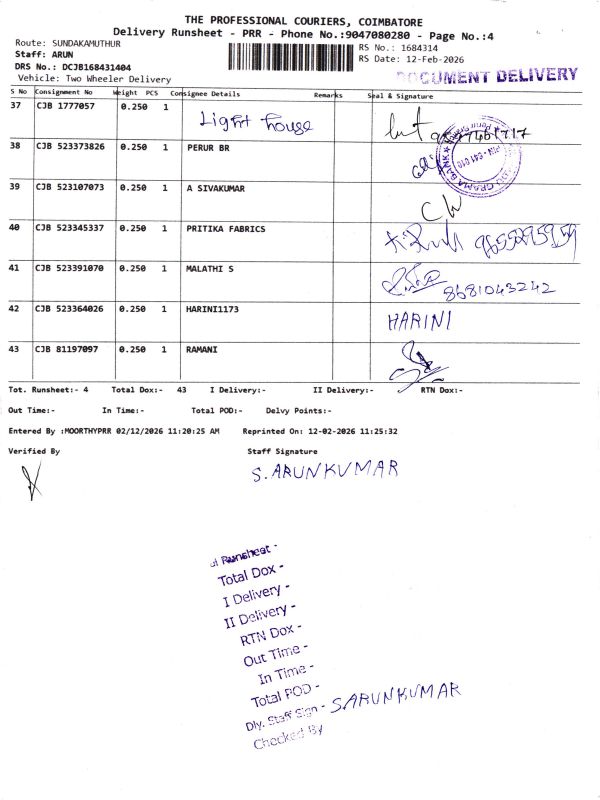 THE PROFESSIONAL COURIERS, COIMBATORE
Delivery Runsheet - PRR - Phone No.:9047080280 - Page No.:4
Route: SUNDAKAMUTHUR
Staff: ARUN
DRS No.: DCJB168431404
Vehicle: Two Wheeler Delivery
RS No.: 1684314
RS Date: 12-Feb-2026
DOCUMENT DELIVERY
S No Consignment No Weight PCS Consignee Details Remarks Seal & Signature
37 CJB 1777057 0.250 1 Light house
38 CJB 523373826 0.250 1 PERUR BR
39 CJB 523107073 0.250 1 A SIVAKUMAR
40 CJB 523345337 0.250 1 PRITIKA FABRICS 9655295959
41 CJB 523391070 0.250 1 MALATHI S 8681043242
42 CJB 523364026 0.250 1 HARINI1173 HARINI
43 CJB 81197097 0.250 1 RAMANI
Tot. Runsheet:- 4 Total Dox:- 43 I Delivery:- II Delivery:- RTN Dox:-
Out Time:- In Time:- Total POD:- Delvy Points:-
Entered By :MOORTHYPRR 02/12/2026 11:20:25 AM Reprinted On: 12-02-2026 11:25:32
Verified By Staff Signature
S.ARUNKUMAR
Runsheet -
Total Dox -
I Delivery -
II Delivery -
RTN Dox -
Out Time -
In Time -
Total POD -
Dly. Staff Sign - S.ARUNKUMAR
Checked By